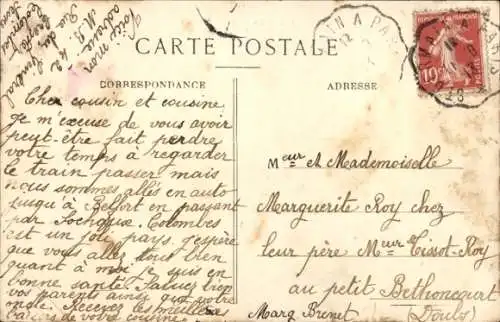 Voici mon
adresse
M. B. 42
Rue du
Général
Colombes
Seine
CARTE POSTALE
CORRESPONDANCE
ADRESSE
10
Cher cousin et cousine
Je m'excuse de vous avoir
peut-être fait perdre
votre temps à regarder
le train passer mais
nous sommes allés en auto
jusqu'à Belfort en passant
par Sochaux. Colombes
est un joli pays. j'espère
que vous allez tous bien
quant à moi je suis en
bonne santé. Saluez trop
vos parents ainsi que votre
Recevez les meilleurs
baisers de votre cousine
Meur et Mademoiselle
Marguerite Roy chez
leur père Meur Tissot-Roy
au petit Bethoncourt
(Doubs)
Marg Brenet